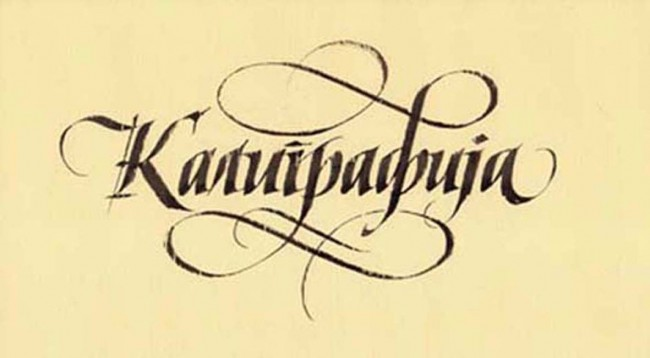 Калиграфија